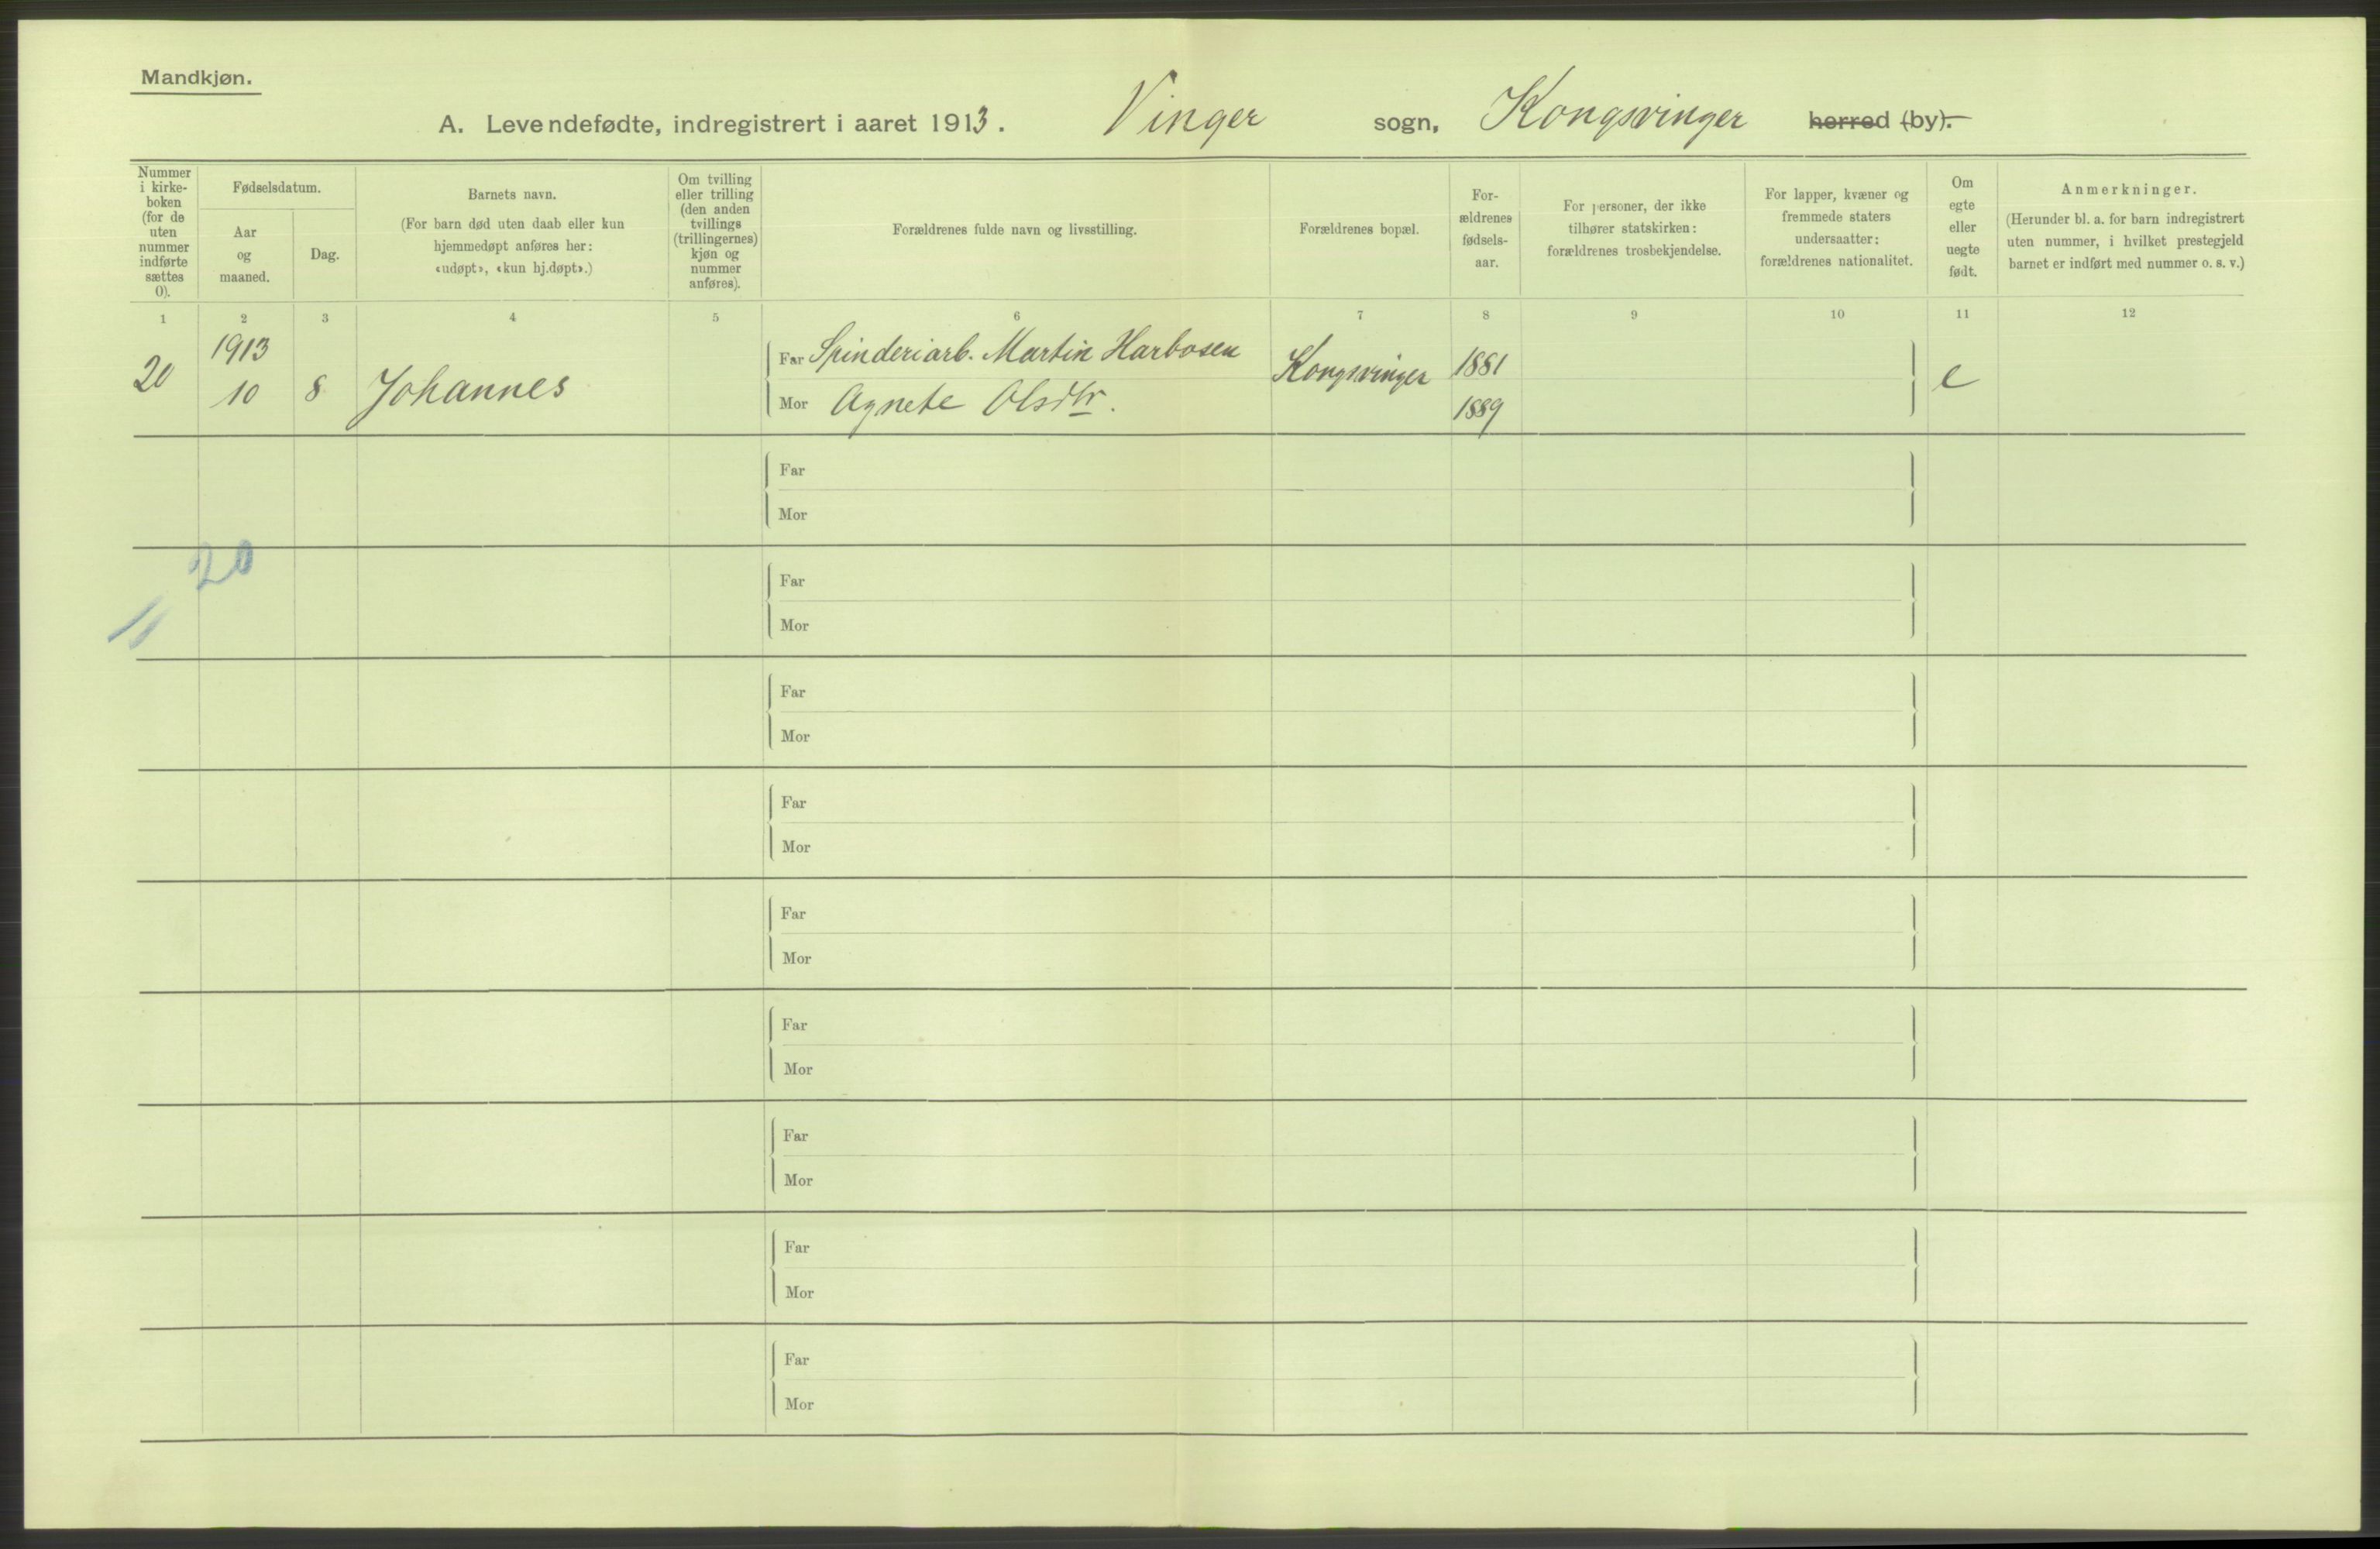 Mandkjøn.
A. Levendefødte, indregistrert i aaret 1913. Vinger sogn, Kongsvinger herred (by).
Nummer i kirke-
boken
(for de
uten
nummer
indførte
sættes
0).
Fødselsdatum.
Aar
og
maaned.
Dag.
Barnets navn.
(For barn død uten daab eller kun
hjemmedøpt anføres her:
«udøpt», «kun hj.døpt».)
Om tvilling
eller trilling
(den anden
tvillings
(trillingernes)
kjøn og
nummer
anføres).
Forældrenes fulde navn og livsstilling.
Forældrenes bopæl.
For-
ældrenes
fødsels-
aar.
For personer, der ikke
tilhører statskirken:
forældrenes trosbekjendelse.
For lapper, kvæner og
fremmede staters
undersaatter:
forældrenes nationalitet.
Om
egte
eller
uegte
født.
Anmerkninger.
(Herunder bl. a. for barn indregistrert
uten nummer, i hvilket prestegjeld
barnet er indført med nummer o. s. v.)
1 2 3 4 5 6 7 8 9 10 11 12
1913
Far Spinderiarb. Martin Harbosen Kongsvinger 1881
20 10 8 Johannes e
Mor Agnete Olsdtr. 1889
Far
Mor
20
Far
Mor
Far
Mor
Far
Mor
Far
Mor
Far
Mor
Far
Mor
Far
Mor
Far
Mor